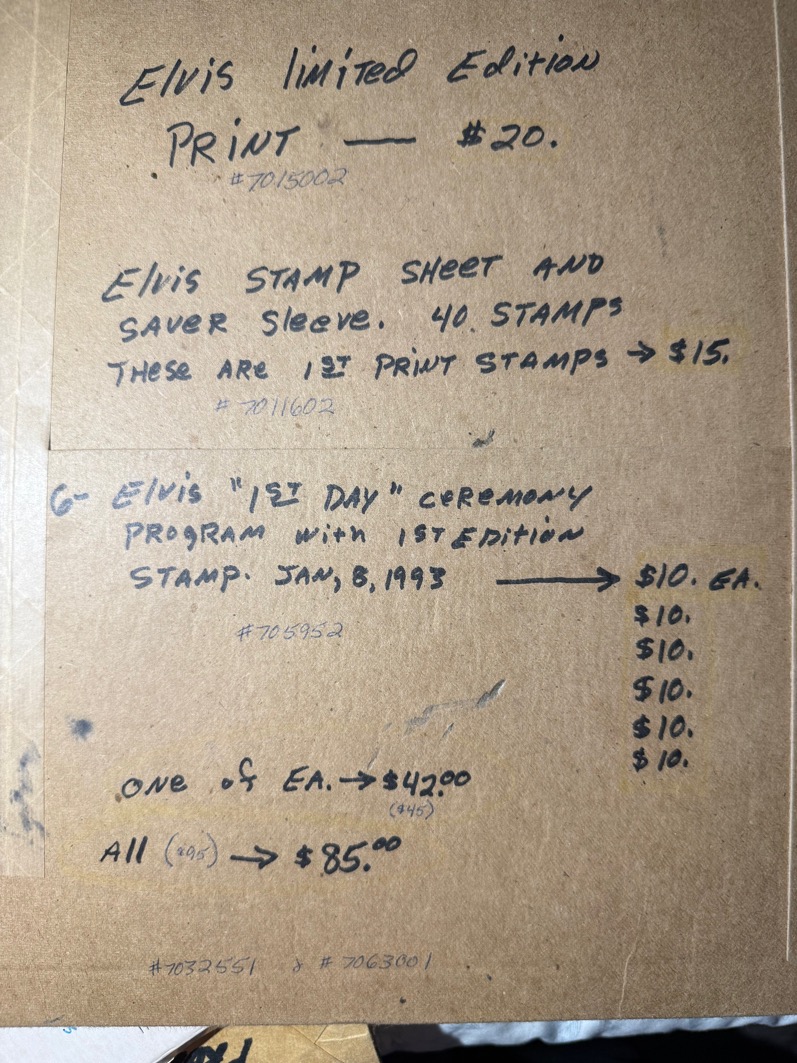 Elvis limited Edition
PRINT — $20.
#7015002
Elvis STAMP SHEET AND
SAVER Sleeve. 40 STAMPS
THese ARe 1ST PRINT STAMPS → $15.
#7011602
6- Elvis "1ST DAY" ceremony
PROGRAM with 1ST Edition
STAMP. JAN, 8, 1993 → $10. EA.
$10.
#705952
$10.
$10.
$10.
$10.
ONE of EA. → $42.00
($45)
All ($95) → $85.00
#7032551 & #7063001